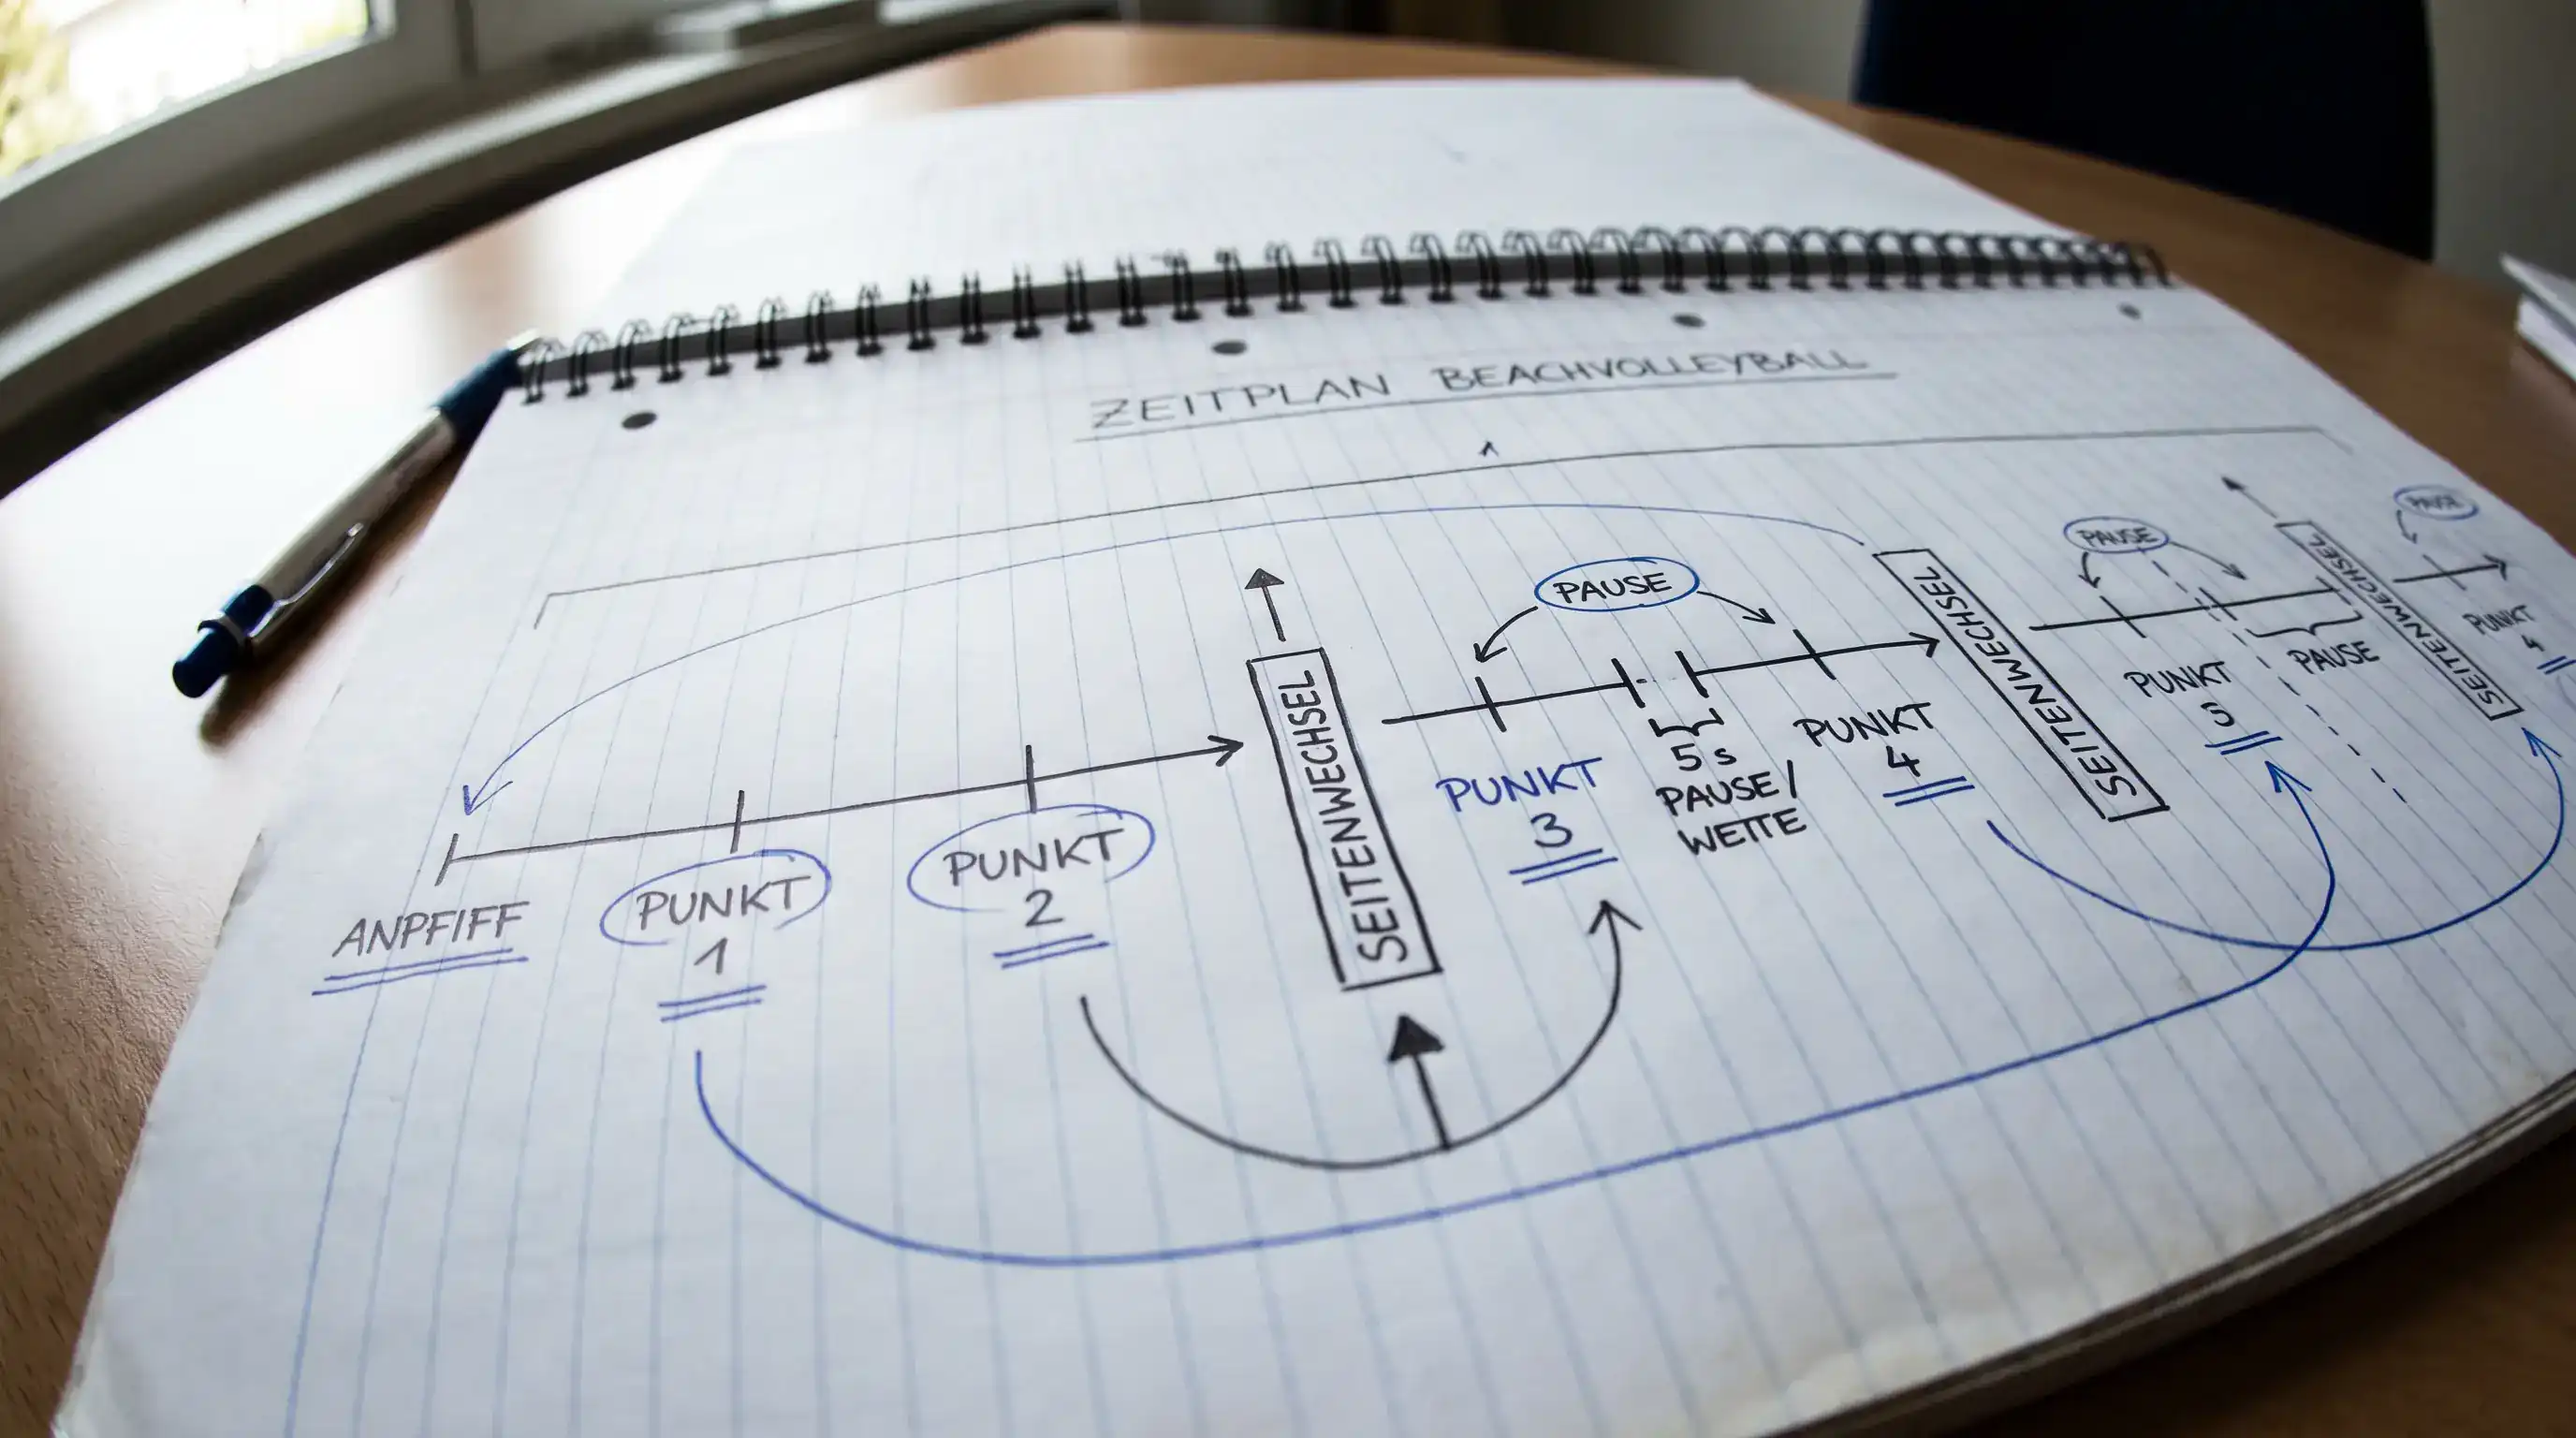 ZEITPLAN BEACHVOLLEYBALL
ANPFIFF
PUNKT
1
PUNKT
2
SEITENWECHSEL
PAUSE
PUNKT
3
5 s
PAUSE/
WETTE
PUNKT
4
SEITENWECHSEL
PAUSE
PUNKT
5
PAUSE
SEITENWECHSEL
PAUSE
PUNKT
4